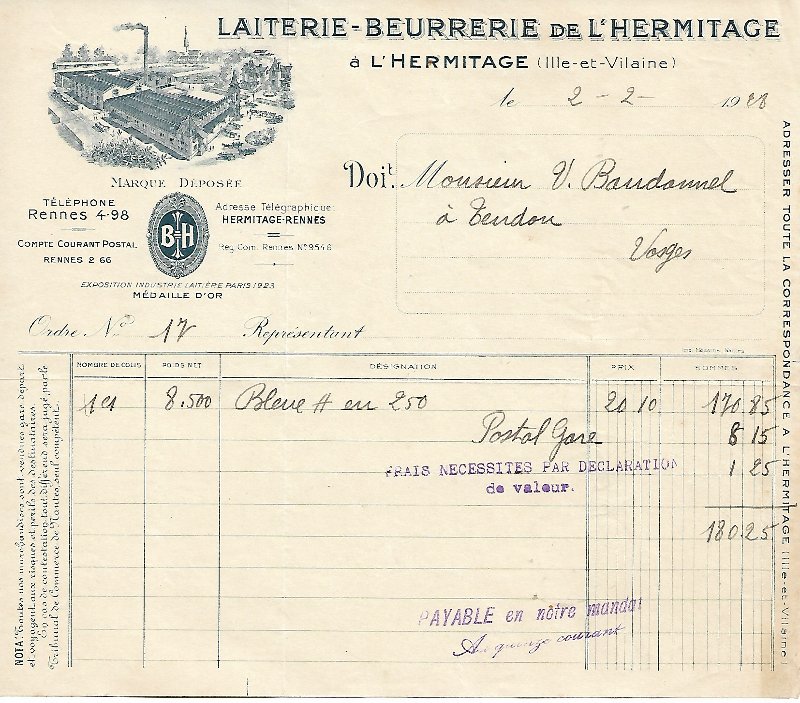 LAITERIE-BEURRERIE DE L'HERMITAGE
à L'HERMITAGE (Ille-et-Vilaine)
le 2-2- 1928
MARQUE DÉPOSÉE
TÉLÉPHONE
Rennes 4-98
COMPTE COURANT POSTAL
RENNES 2 66
B=H
Adresse Télégraphique:
HERMITAGE-RENNES
Reg. Com. Rennes No 9546
EXPOSITION INDUSTRIE LAITIÈRE PARIS 1923
MÉDAILLE D'OR
Doit. Monsieur V. Baudonnel
à Tendon
Vosges
Ordre No 17 Représentant
NOMBRE DE COLIS POIDS NET DÉSIGNATION PRIX SOMMES
8.500 Bleue # en 250 20 10 170 85
Postal Gare 8 15
FRAIS NECESSITES PAR DECLARATION 1 25
de valeur.
180.25
PAYABLE en notre mandat
Au quinze courant
NOTA Toutes nos marchandises sont vendues gare départ
et voyagent aux risques et périls des destinataires
En cas de contestation, tout différend sera jugé par le
Tribunal de Commerce de Nantes seul compétent.
ADRESSER TOUTE LA CORRESPONDANCE A L'HERMITAGE (Ille-et-Vilaine)